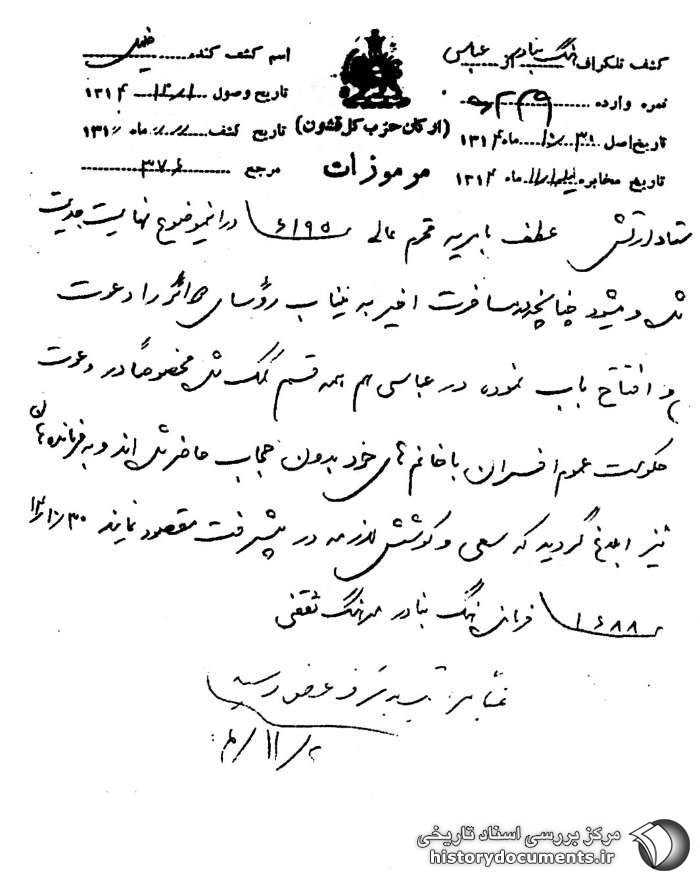 کشف تلگراف هنگ بنادر از عباسی
نمره وارده ۴۴۹
تاریخ اصل ۳۰/۱۰ ماه ۱۳۱۴
تاریخ مخابره ماه ۱۳۱۴
(ارکان حزب کل قشون)
مرموزات
اسم کشف کننده
تاریخ وصول ۱۳۱۴
تاریخ کشف ماه ۱۳۱
مرجع ۳۷۶
ستاد ارتش عطف بامریه محترم عالی ۶۱۹۵ در این موضوع نهایت جدیت
شده و میشود چنانچه در مسافرت اخیر به میناب رؤسای دوائر را دعوت
و افتتاح باب نموده، در عباسی هم همه قسم کمک شده مخصوصاً در دعوت
حکومت عموم افسران با خانم های خود بدون حجاب حاضر شده اند و به فرمانده هان
نیز ابلاغ گردید که سعی و کوشش لازمه در پیشرفت مقصود نمایند ۳۰/۱۰/۱۴
۱۶۸۸ فرمانده هنگ بنادر سرهنگ ثقفی
بشرف عرض رسید
۲/۱۱/۱۴
مرکز بررسی اسناد تاریخی
historydocuments.ir